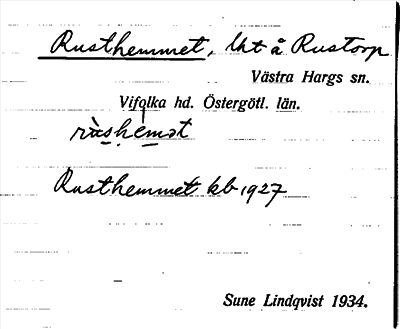 Rusthemmet, lht å Rustorp
Västra Hargs sn.
Vifolka hd. Östergötl. län.
Rusthemmet kb 1927
Sune Lindqvist 1934.